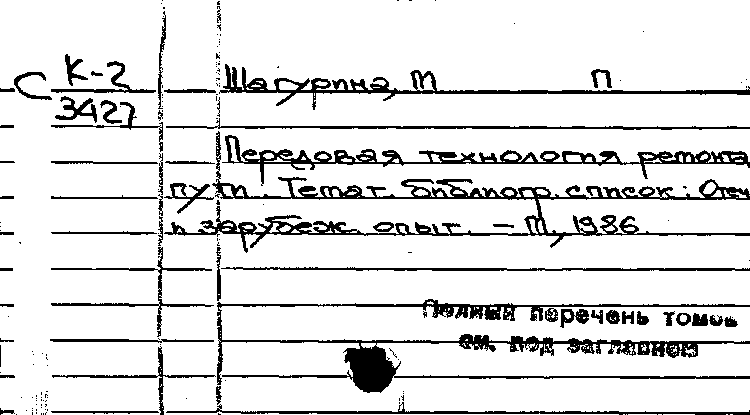 С К-2
3427
Шагурина, М П
Передовая технология ремонта
пути. Темат. библиогр. список: Отеч
и зарубеж. опыт. – М., 1986.
Полный перечень томов
см. под заглавием